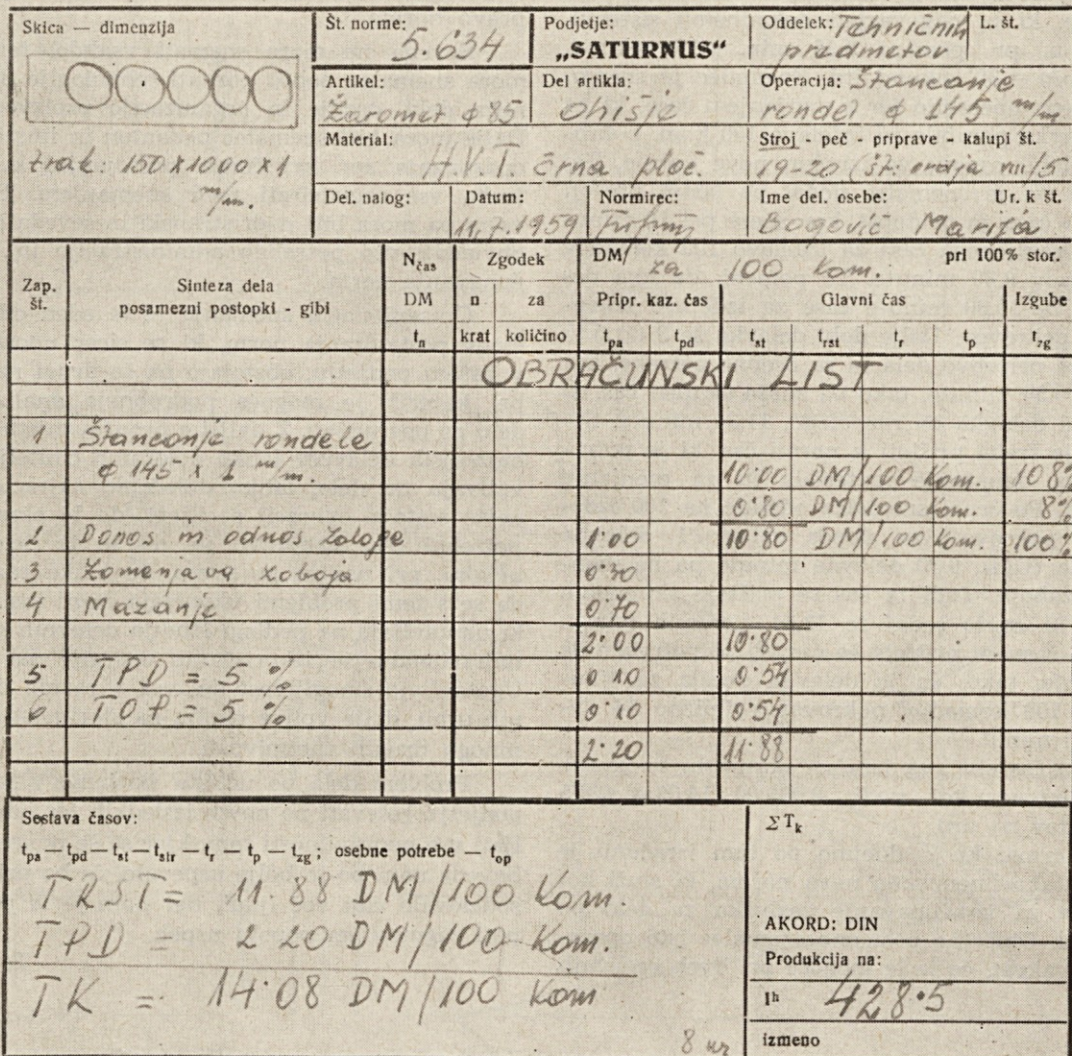 Skica — dimenzija
trak: 150 x 1000 x 1
m/m.
Št. norme:
5.634
Podjetje:
„SATURNUS“
Oddelek: Tehničnih
predmetov
L. št.
Artikel:
Žaromet φ 85
Del artikla:
Ohišje
Operacija: Štancanje
rondel φ 145 m/m
Material:
H.V.T. črna ploč.
Stroj - peč - priprave - kalupi št.
19-20 (št. orodja
Del. nalog:
Datum:
11.7.1959
Normirec:
Ime del. osebe:
Bogovič Marija
Ur. k št.
Zap. št.
Sinteza dela
posamezni postopki - gibi
Nčas
DM
tn
Zgodek
n krat
za količino
DM/ za 100 kom. pri 100% stor.
Pripr. kaz. čas
Glavni čas
Izgube
tpa tpd tst trst tr tp tzg
OBRAČUNSKI LIST
1 Štancanje rondele
φ 145 x 1 m/m. 10·00 DM/100 kom. 108%
0·80 DM/100 kom. 8%
2 Donos in odnos zaloge 1·00 10·80 DM/100 kom. 100%
3 Zamenjava zaboja 0·30
4 Mazanje 0·70
2·00 10·80
5 TPD = 5 % 0·10 0·54
6 TOP = 5 % 0·10 0·54
2·20 11·88
Sestava časov:
tpa — tpd — tst — tstr — tr — tp — tzg ; osebne potrebe — top
TRST = 11.88 DM/100 kom.
TPD = 2 20 DM/100 kom.
TK = 14·08 DM/100 kom
8 ur
ΣTk
AKORD: DIN
Produkcija na:
1h 428·5
izmeno